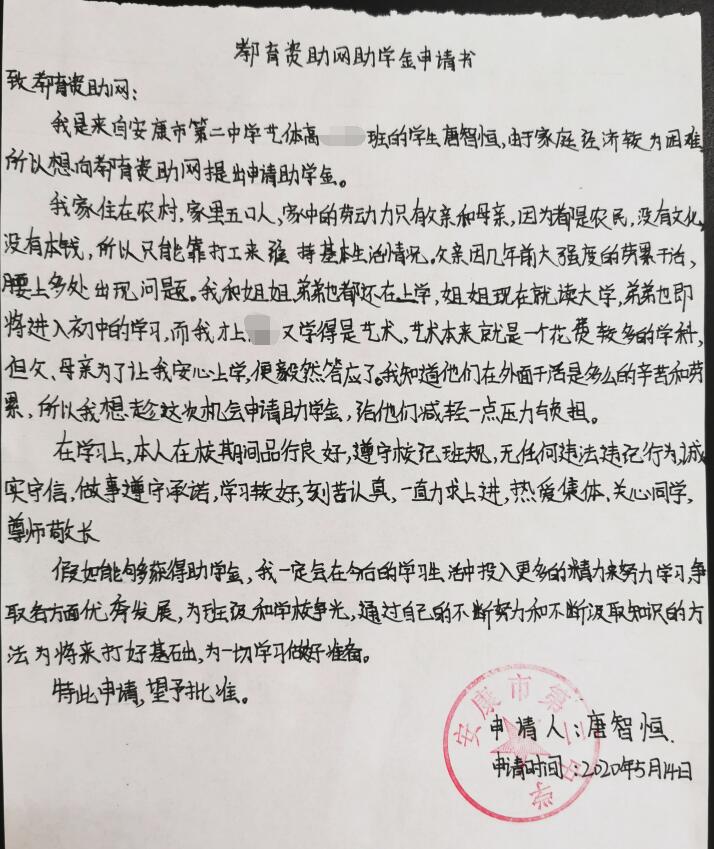 教育资助网助学金申请书
致教育资助网:
我是来自安康市第二中学艺体高 班的学生唐智恒,由于家庭经济较为困难
所以想向教育资助网提出申请助学金。
我家住在农村,家里五口人,家中的劳动力只有父亲和母亲,因为都是农民,没有文化,
没有本钱,所以只能靠打工来维持基本生活情况。父亲因几年前大强度的劳累干活,
腰上多处出现问题。我和姐姐弟弟也都还在上学,姐姐现在就读大学,弟弟也即
将进入初中的学习,而我才上 又学得是艺术,艺术本来就是一个花费较多的学科,
但父、母亲为了让我安心上学,便毅然答应了。我知道他们在外面干活是多么的辛苦和劳
累,所以我想趁这次机会申请助学金,给他们减轻一点压力与负担。
在学习上,本人在校期间品行良好,遵守校纪班规,无任何违法违纪行为,诚
实守信,做事遵守承诺,学习较好,刻苦认真,一直力求上进,热爱集体,关心同学,
尊师敬长
假如能够获得助学金,我一定会在今后的学习生活中投入更多的精力来努力学习,争
取各方面优秀发展,为班级和学校争光,通过自己的不断努力和不断汲取知识的方
法为将来打好基础,为一切学习做好准备。
特此申请,望予批准。
安康市第二中学
申请人:唐智恒
申请时间:2020年5月14日